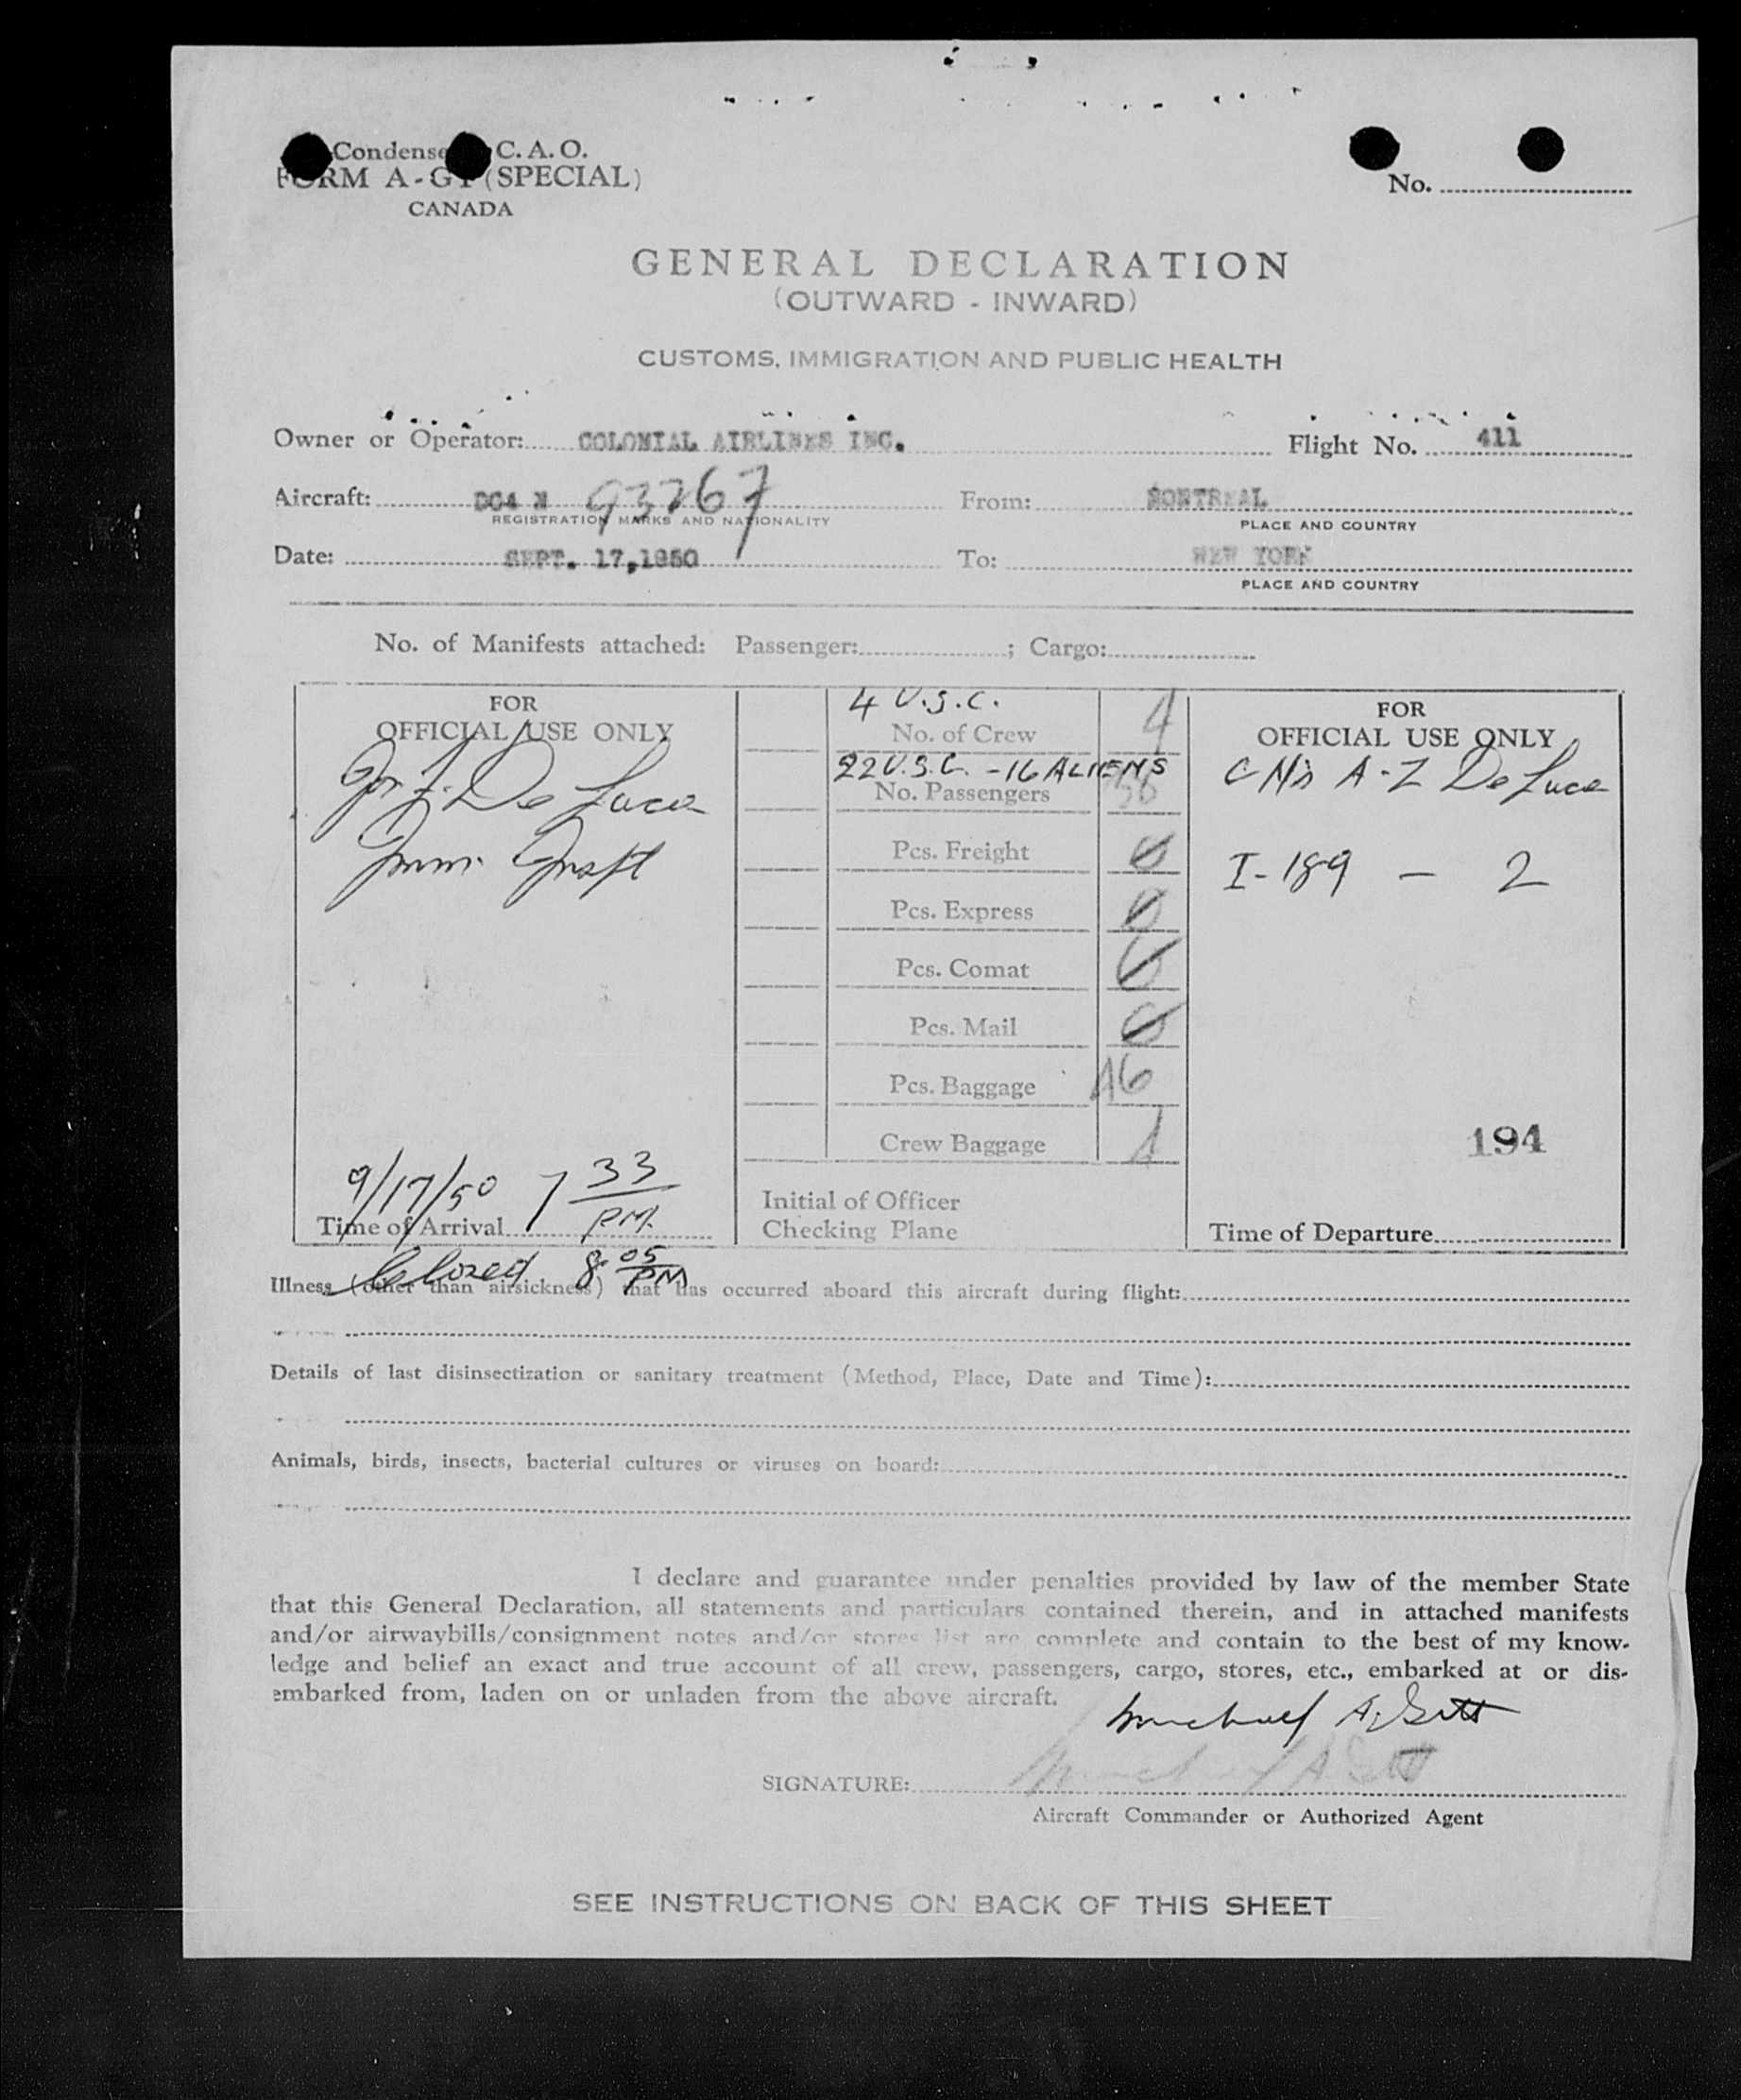 Condense C. A. O.
FORM A-G1 (SPECIAL)
CANADA
No.
GENERAL DECLARATION
(OUTWARD - INWARD)
CUSTOMS, IMMIGRATION AND PUBLIC HEALTH
Owner or Operator: COLONIAL AIRLINES INC. Flight No. 411
Aircraft: DC4 N 93267 From: MONTREAL
REGISTRATION MARKS AND NATIONALITY PLACE AND COUNTRY
Date: SEPT. 17,1950 To: NEW YORK
PLACE AND COUNTRY
No. of Manifests attached: Passenger: ; Cargo:
FOR
OFFICIAL USE ONLY
De Luca
Imm.
9/17/50 7 33 PM.
Time of Arrival
Closed 8:05 PM
4 U.S.C.
No. of Crew 4
22 U.S.C. - 16 ALIENS
No. Passengers
Pcs. Freight 0
Pcs. Express 0
Pcs. Comat 0
Pcs. Mail 0
Pcs. Baggage
Crew Baggage
Initial of Officer
Checking Plane
FOR
OFFICIAL USE ONLY
A-Z De Luca
I-189 - 2
194
Time of Departure
Illness (other than airsickness) that has occurred aboard this aircraft during flight:
Details of last disinsectization or sanitary treatment (Method, Place, Date and Time):
Animals, birds, insects, bacterial cultures or viruses on board:
I declare and guarantee under penalties provided by law of the member State
that this General Declaration, all statements and particulars contained therein, and in attached manifests
and/or airwaybills/consignment notes and/or stores list are complete and contain to the best of my know-
ledge and belief an exact and true account of all crew, passengers, cargo, stores, etc., embarked at or dis-
embarked from, laden on or unladen from the above aircraft.
Michael A.
SIGNATURE: Michael A
Aircraft Commander or Authorized Agent
SEE INSTRUCTIONS ON BACK OF THIS SHEET